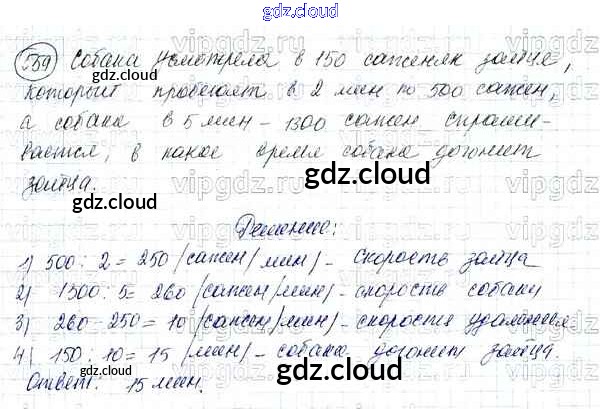 gdz.cloud
559 Собака усмотрела в 150 саженях зайца,
который пробегает в 2 мин по 500 сажен,
а собака в 5 мин – 1300 сажен. Спраши-
вается, в какое время собака догонит
зайца.
Решение:
1) 500 : 2 = 250 (сажен/мин) – скорость зайца
2) 1300 : 5 = 260 (сажен/мин) – скорость собаки
3) 260 – 250 = 10 (сажен/мин) – скорость удаления
4) 150 : 10 = 15 (мин) – собака догонит зайца.
Ответ: 15 мин.
gdz.cloud
gdz.cloud
gdz.cloud
gdz.cloud
gdz.cloud
gdz.cloud
gdz.cloud
vipgdz
vipgdz
vipgdz